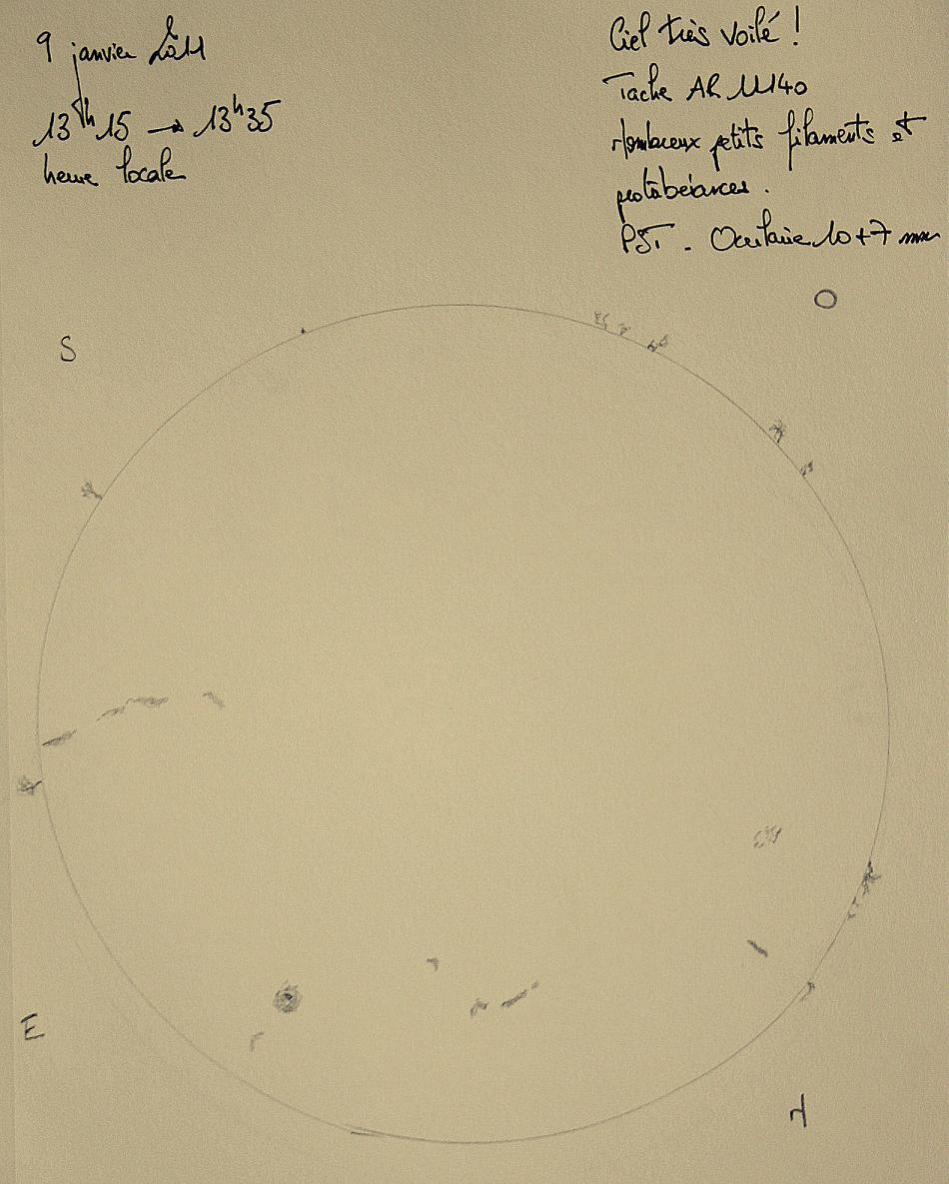 9 janvier 2011
13h15 → 13h35
heure locale
Ciel très voilé !
Tache AR 11140
Nombreux petits filaments et
protubérances.
PST - Oculaire 10+7 mm
O
S
E
N